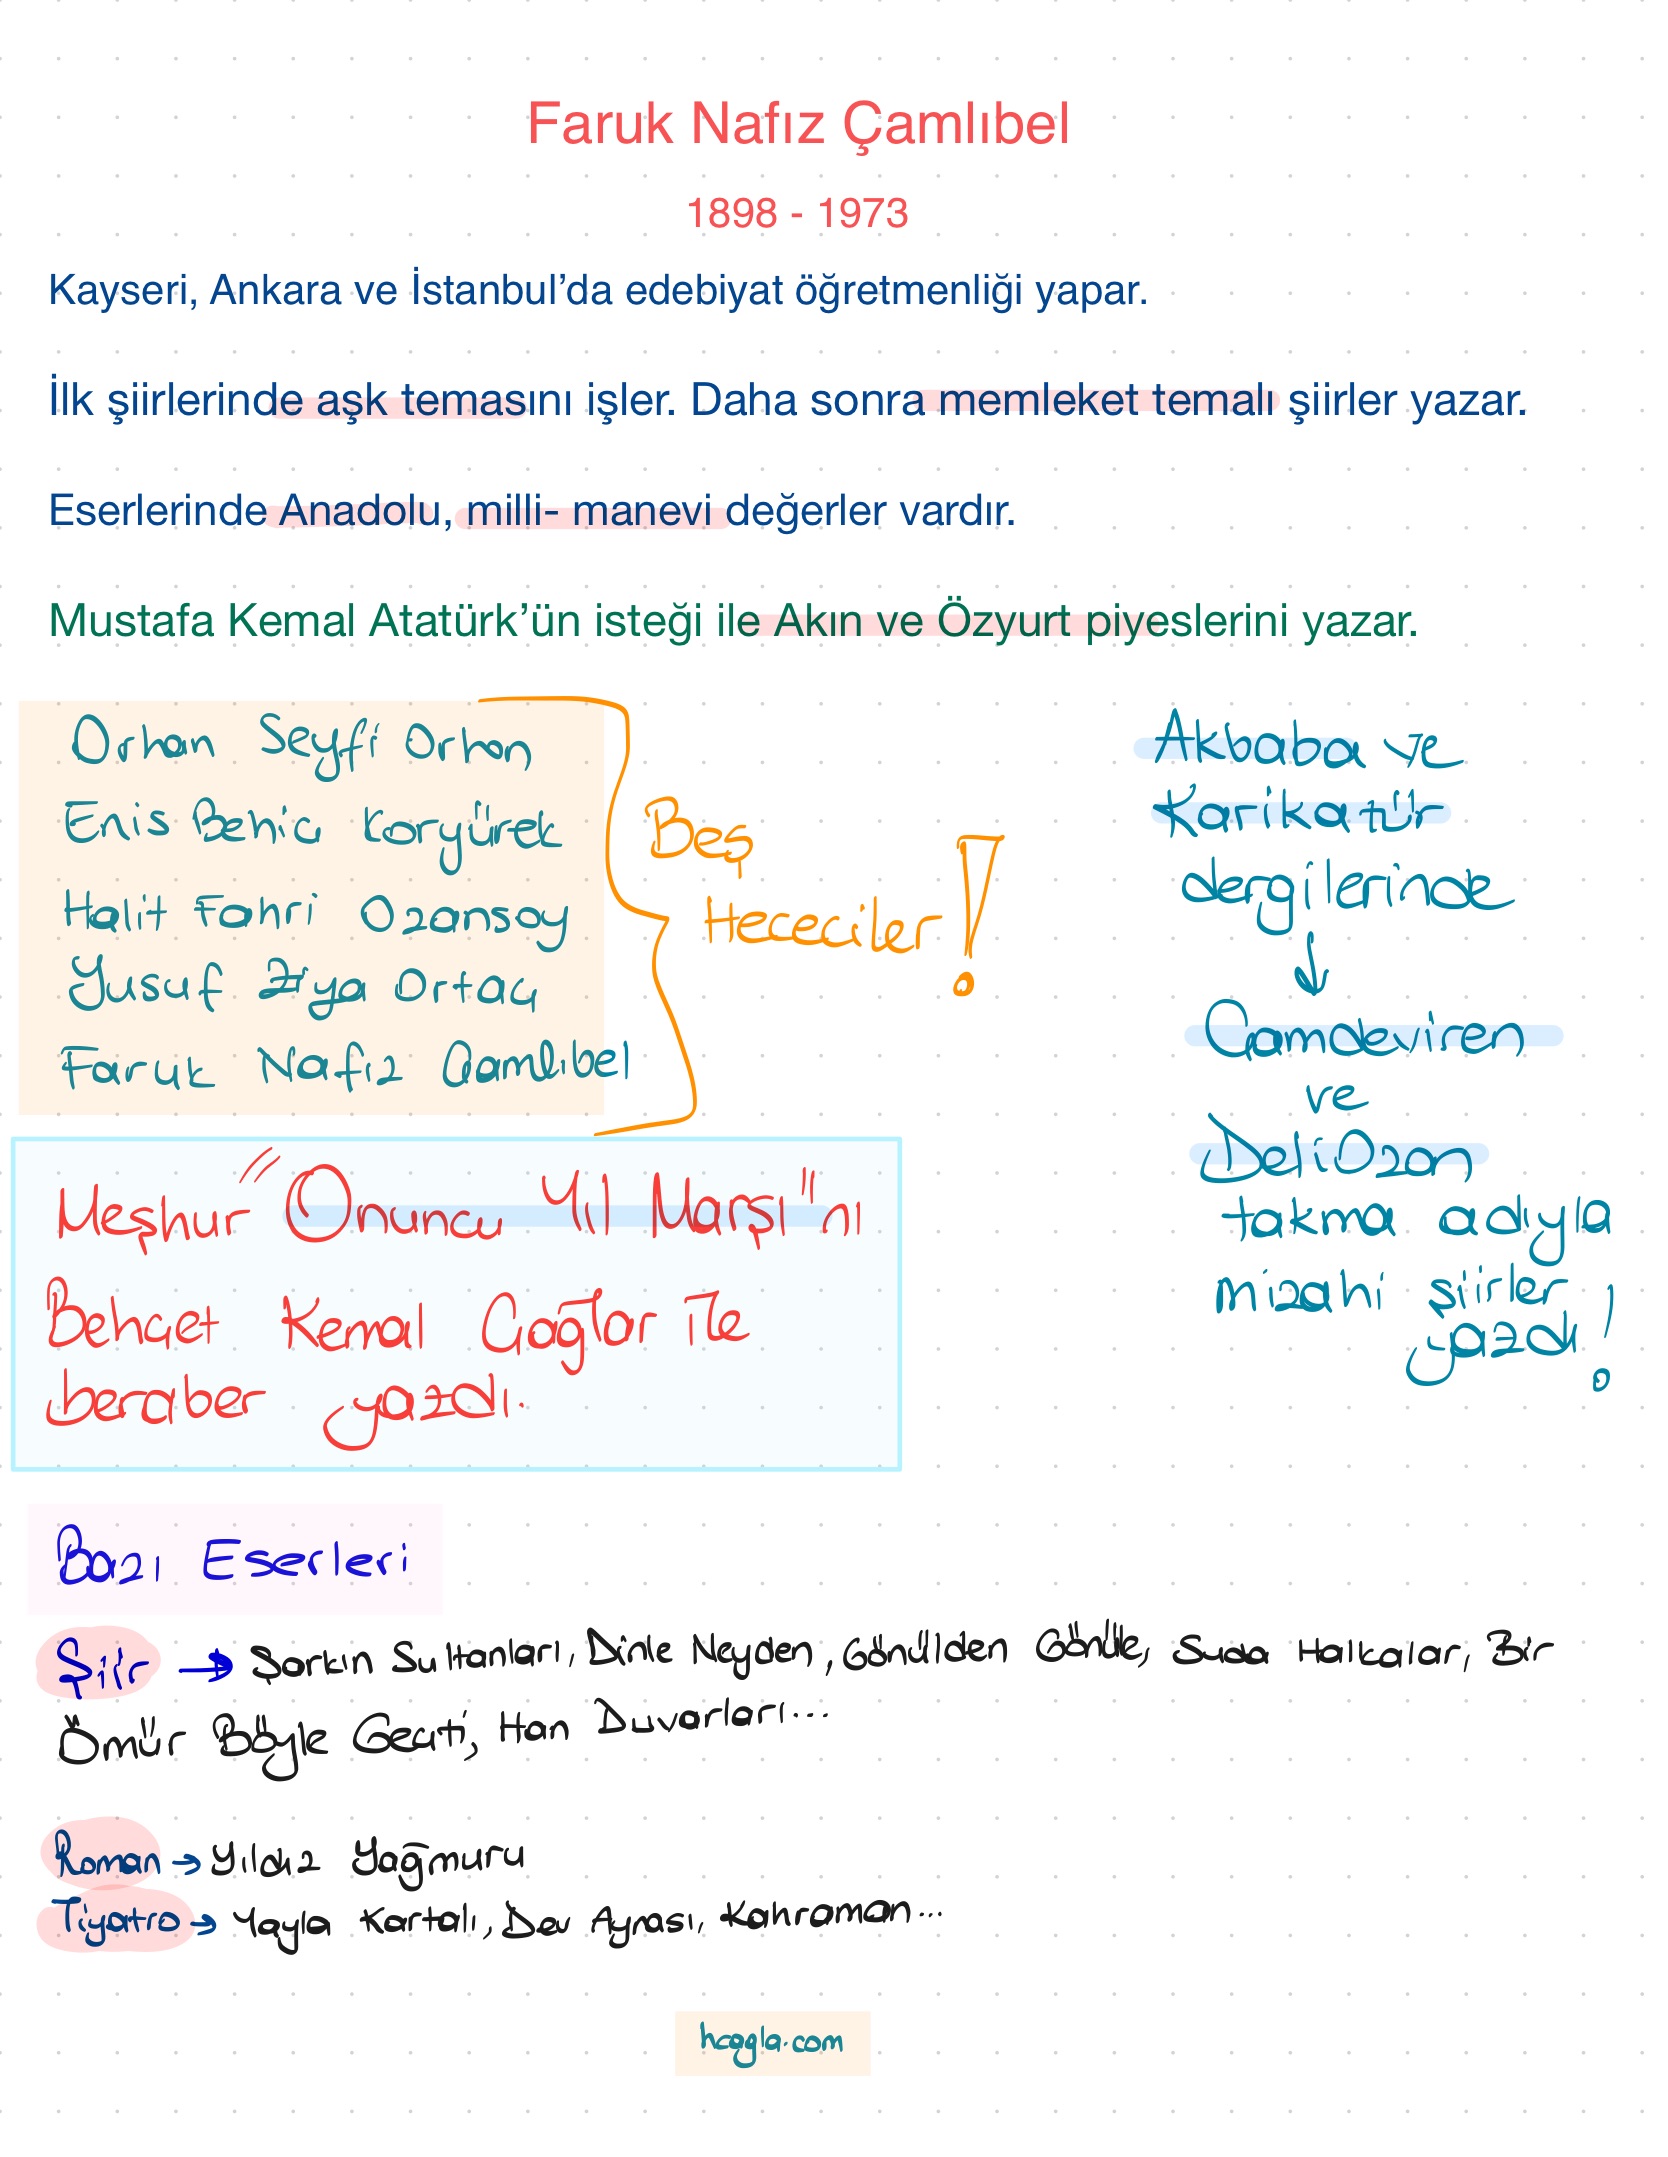 Faruk Nafız Çamlıbel
1898 - 1973
Kayseri, Ankara ve İstanbul’da edebiyat öğretmenliği yapar.
İlk şiirlerinde aşk temasını işler. Daha sonra memleket temalı şiirler yazar.
Eserlerinde Anadolu, milli- manevi değerler vardır.
Mustafa Kemal Atatürk’ün isteği ile Akın ve Özyurt piyeslerini yazar.
Orhan Seyfi Orhon
Enis Behiç Koryürek
Halit Fahri Ozansoy
Yusuf Ziya Ortaç
Faruk Nafız Çamlıbel
Beş
Hececiler!
Akbaba ve
Karikatür
dergilerinde
↓
Çamdeviren
ve
Deli Ozan
takma adıyla
mizahi şiirler
yazdı!
Meşhur "Onuncu Yıl Marşı"nı
Behçet Kemal Çağlar ile
beraber yazdı.
Bazı Eserleri
Şiir → Şarkın Sultanları, Dinle Neyden, Gönülden Gönüle, Suda Halkalar, Bir
Ömür Böyle Geçti, Han Duvarları...
Roman → Yıldız Yağmuru
Tiyatro → Yayla Kartalı, Dev Aynası, Kahraman...
hcagla.com